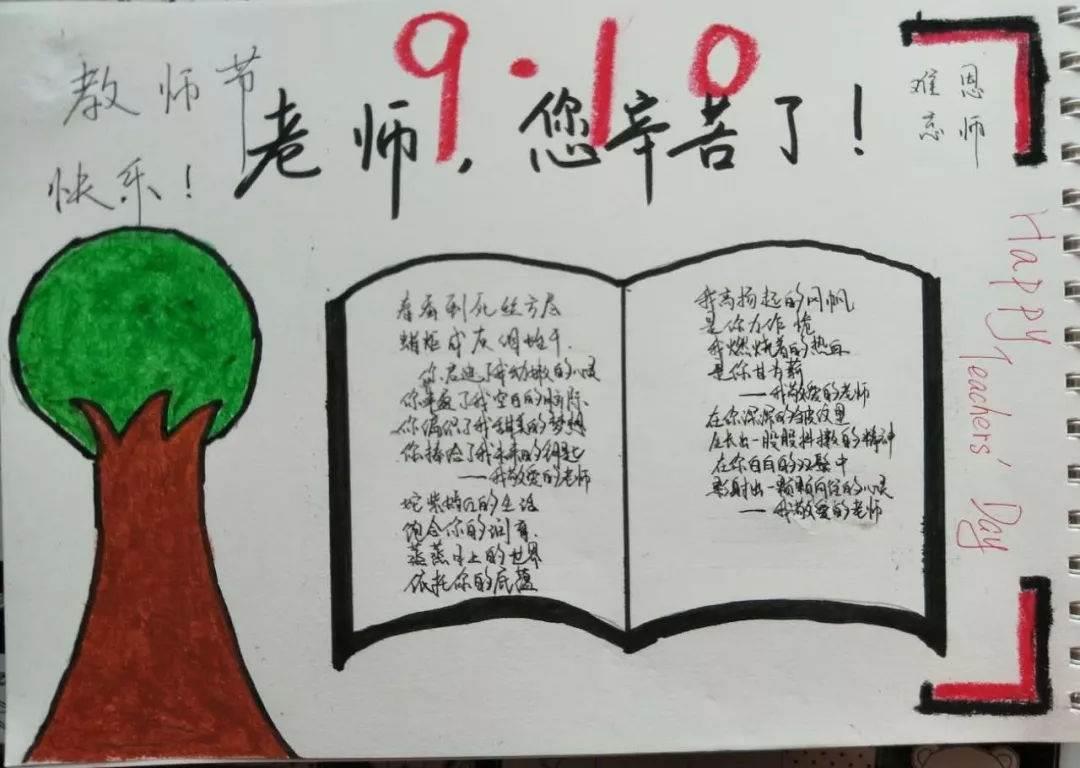 9·10
教师节
快乐！
老师，您辛苦了！
恩师
难忘
Happy Teachers' Day
春蚕到死丝方尽
蜡炬成灰泪始干.
你启迪了我幼嫩的心灵
你丰盈了我空白的脑际
你编织了我甜美的梦想
你捧给了我未来的钥匙
——我敬爱的老师
的生活
饱含你的润育.
蒸蒸日上的世界
依托你的底蕴
我高扬起的风帆
是你为作桅
我燃烧着的热血
是你甘为薪
——我敬爱的老师
在你深深的皱纹里
生长出一股股抖擞的精神
在你白白的双鬓中
影射出一颗颗向往的心灵
——我敬爱的老师